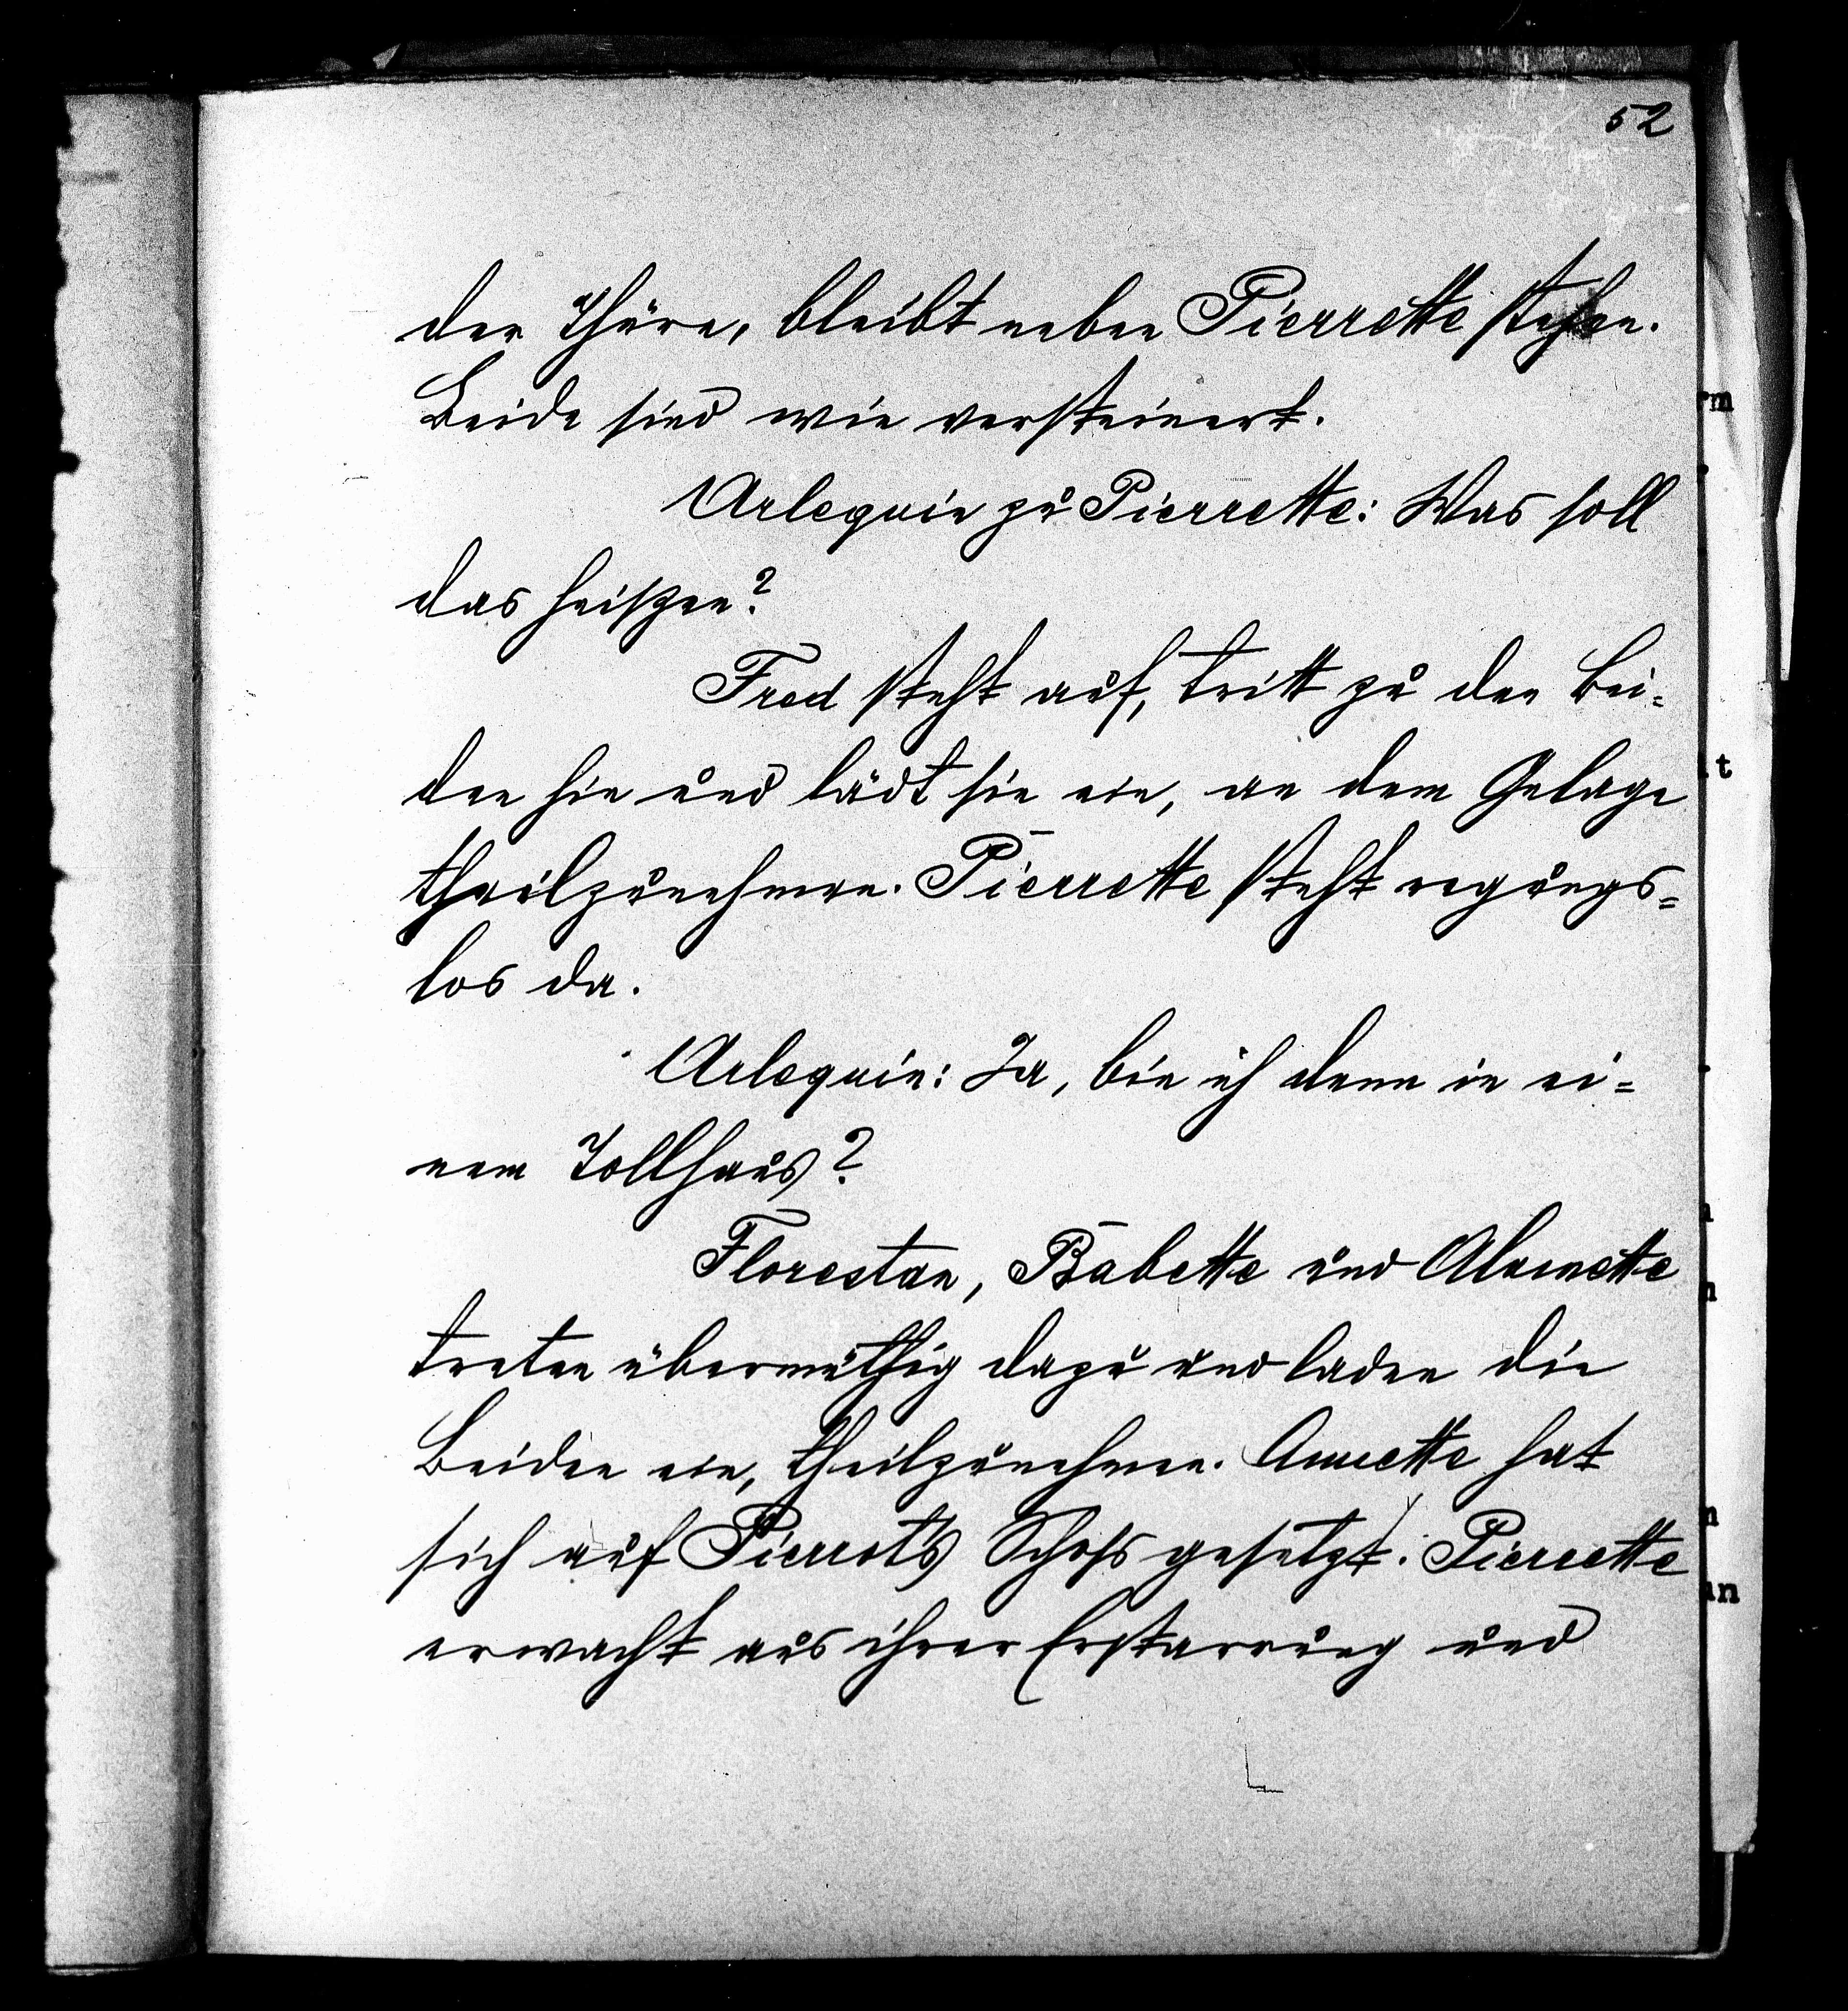 52
der Thüre, bleibt neben Pierrette stehen.
Beide sind wie versteinert.
Arlequin zu Pierrette: Was soll
das heißen?
Fred steht auf, tritt zu den Bei-
den hin und lädt sie ein, an dem Gelage
theilzunehmen. Pierrette steht regungs-
los da.
Arlequin: Ja, bin ich denn in ei-
nem Tollhaus?
Florestan, Babette und Alumette
treten übermüthig dazu und laden die
Beiden ein, theilzunehmen. Annette hat
sich auf Pierrots Schoß gesetzt. Pierrette
erwacht aus ihrer Erstarrung und